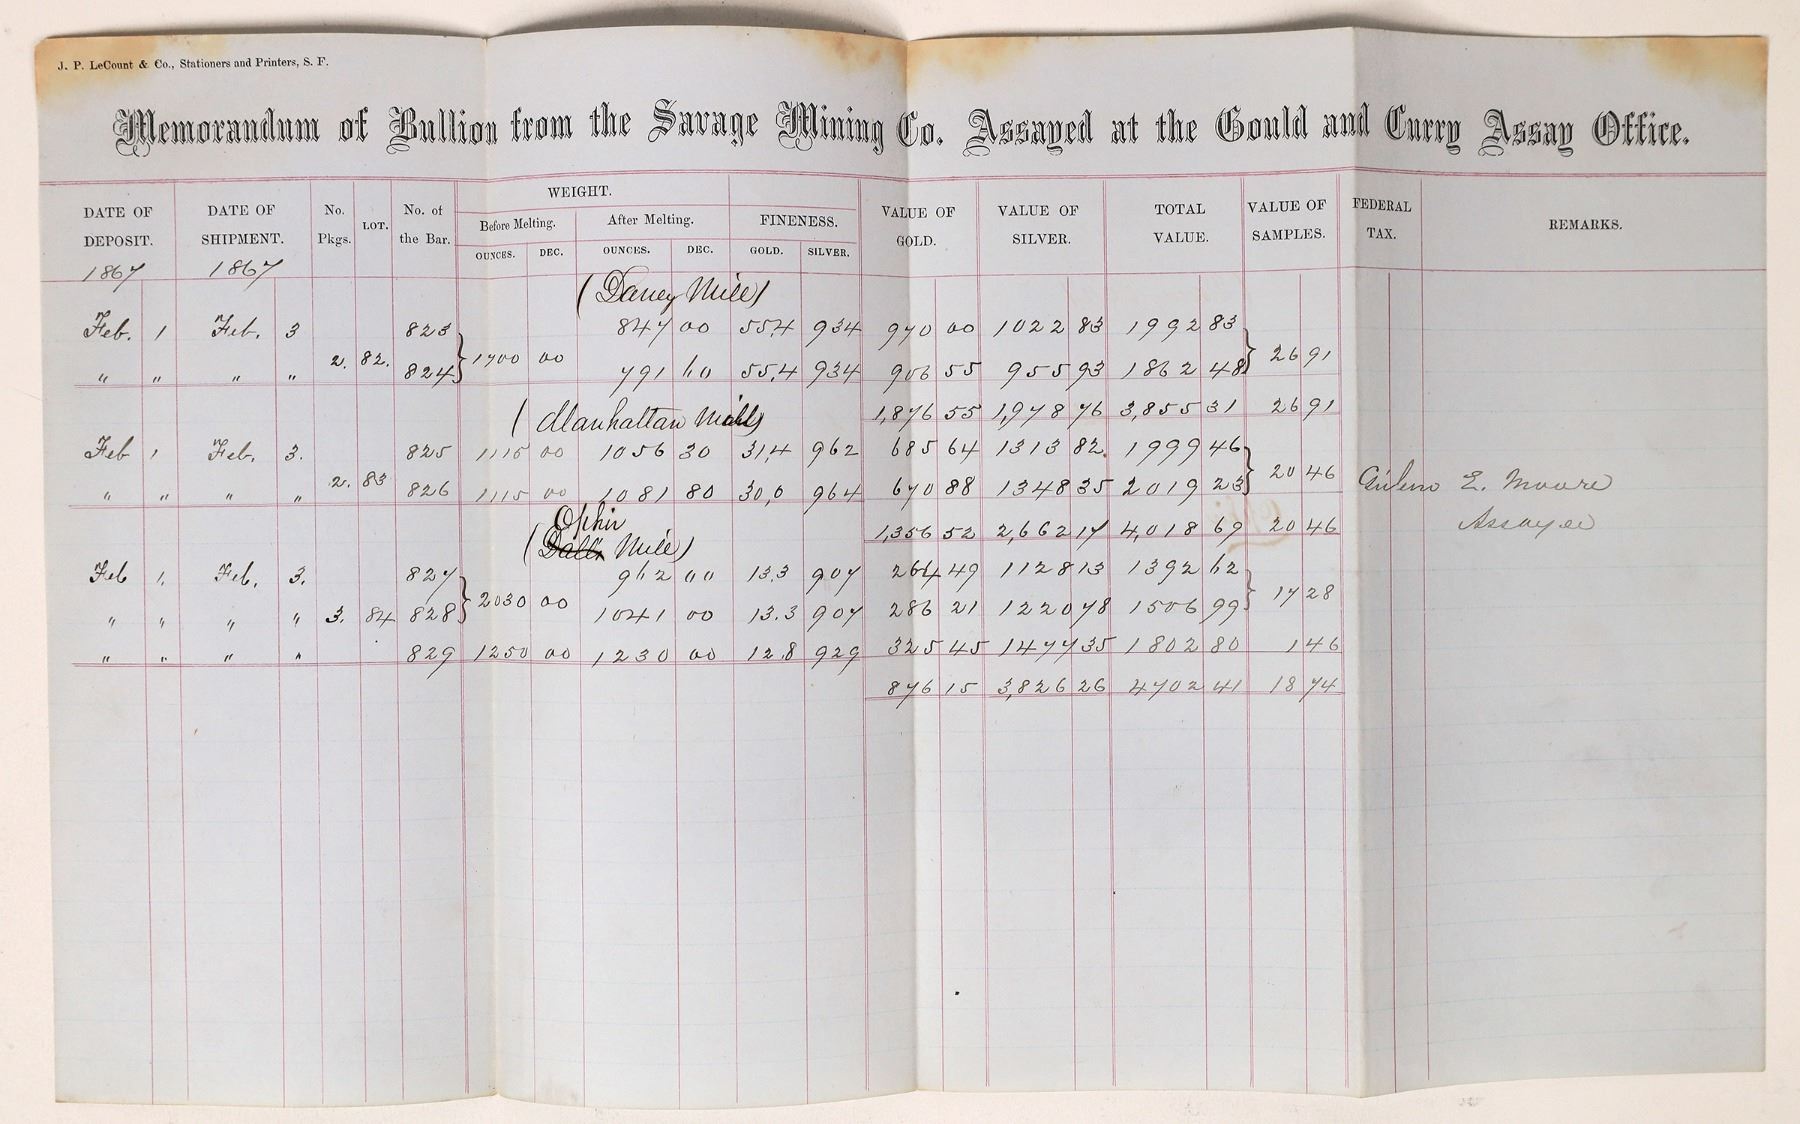 J. P. LeCount & Co., Stationers and Printers, S. F.
Memorandum of Bullion from the Savage Mining Co. Assayed at the Gould and Curry Assay Office.
DATE OF DEPOSIT. DATE OF SHIPMENT. No. Pkgs. LOT. No. of the Bar. WEIGHT. Before Melting. OUNCES. DEC. After Melting. OUNCES. DEC. FINENESS. GOLD. SILVER. VALUE OF GOLD. VALUE OF SILVER. TOTAL VALUE. VALUE OF SAMPLES. FEDERAL TAX. REMARKS.
1867 1867
(Daney Mill)
Feb. 1 Feb. 3 823 847 00 55.4 934 970 00 1022 83 1992 83
2. 82. 1700 00 26 91
" " " " 824 791 60 55.4 934 906 55 955 93 1862 48
1,876 55 1,978 76 3,855 31 26 91
(Manhattan Mill)
Feb 1 Feb. 3. 825 1115 00 1056 30 31.4 962 685 64 1313 82. 1999 46
2. 83 20 46
" " " " 826 1115 00 1081 80 30,0 964 670 88 1348 35 2019 23
E. Moore
Assayer
1,356 52 2,662 17 4,018 69 20 46
Ophir
(Mill)
Feb 1. Feb. 3. 827 962 00 13.3 907 264 49 1128 13 1392 62
2030 00 17 28
" " " " 3. 84 828 1041 00 13.3 907 286 21 1220 78 1506 99
" " " " 829 1250 00 1230 00 12.8 929 325 45 1477 35 1802 80 1 46
876 15 3,826 26 4702 41 18 74